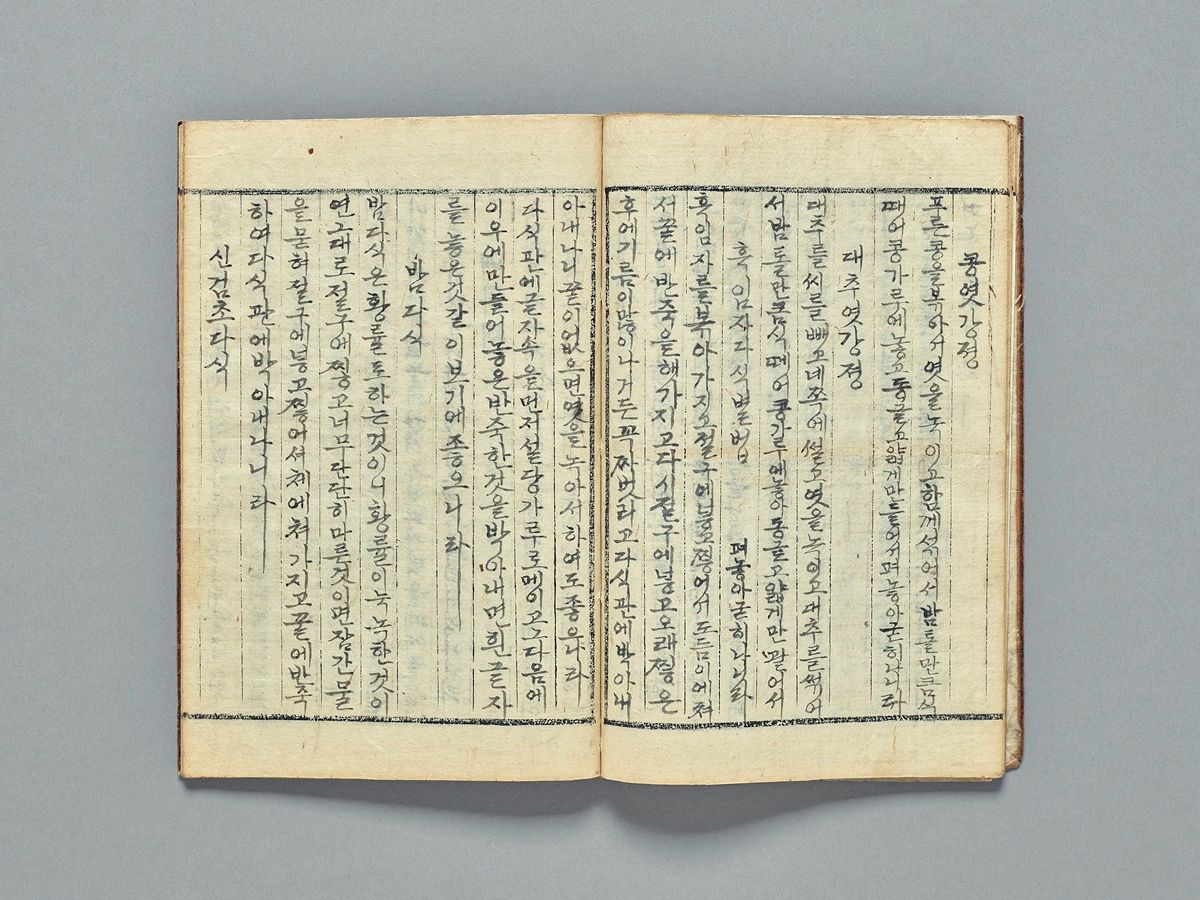 콩엿강정
푸른콩을복아서엿을녹이고함께석어서밤톨만큼식
떼어콩가루에놓고둥글고얇게만들어서펴놓아굳히나니라
대추엿강정
대추를씨를빼고네쪽에썰고엿을녹이고대추를썩어
서밤톨만큼식떼어콩가루에놓아둥글고얇게만들어서
펴놓아굳히나니라
흑임자다식별법
흑임자를복아가지고절구에넣고찧어서도듬이에쳐
서꿀에반죽을해가지고다시절구에넣고오래찧은
후에기름이많이나거든꼭짜벗리고다식판에박아내
아내나니꿀이없으면엿을녹아서하여도좋으니라
다식판에글자속을먼저설당가루로메이고그다음에
이우에만들어놓은반죽한것을박아내면흰글자
를놓은것같이보기에좋으니라
밤다식
밤다식은황률로하는것이니황률이눅눅한것이
연그대로절구에찧고너무단단히마른것이면잠간물
을묻혀절구에넣고찧어셔체에쳐가지고꿀에반죽
하여다식판에박아내나니라
신검초다식